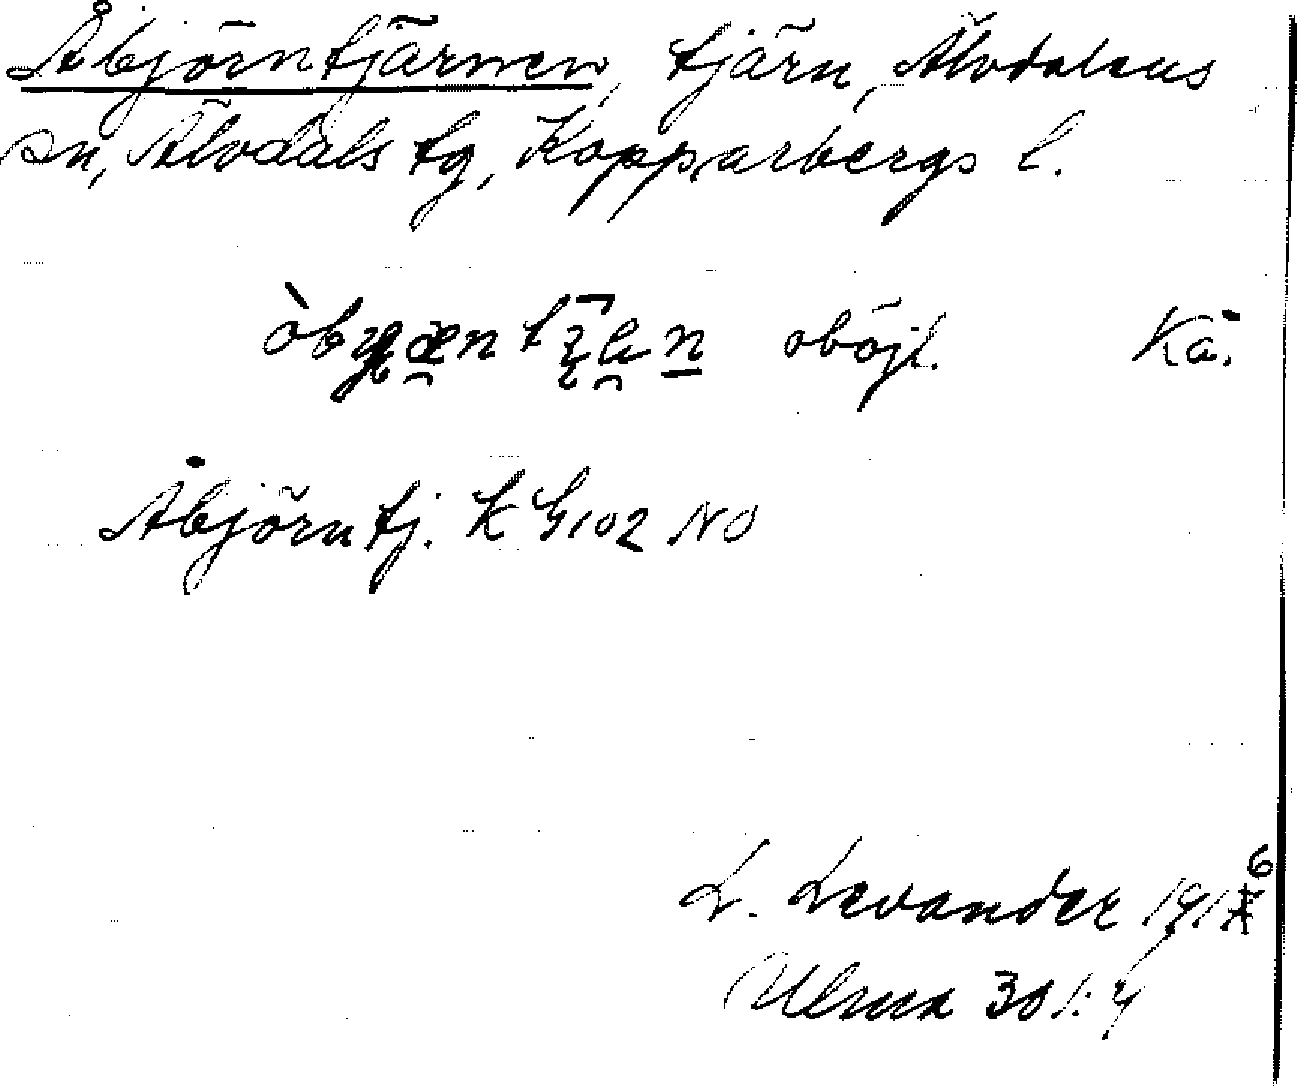 Åbjörntjärnen, tjärn, Älvdalens
sn, Älvdals tg, Kopparbergs l.
oböjl. Kå.
Åbjörntj. K G102 NO
L. Levander 1916
Ulma 301:4